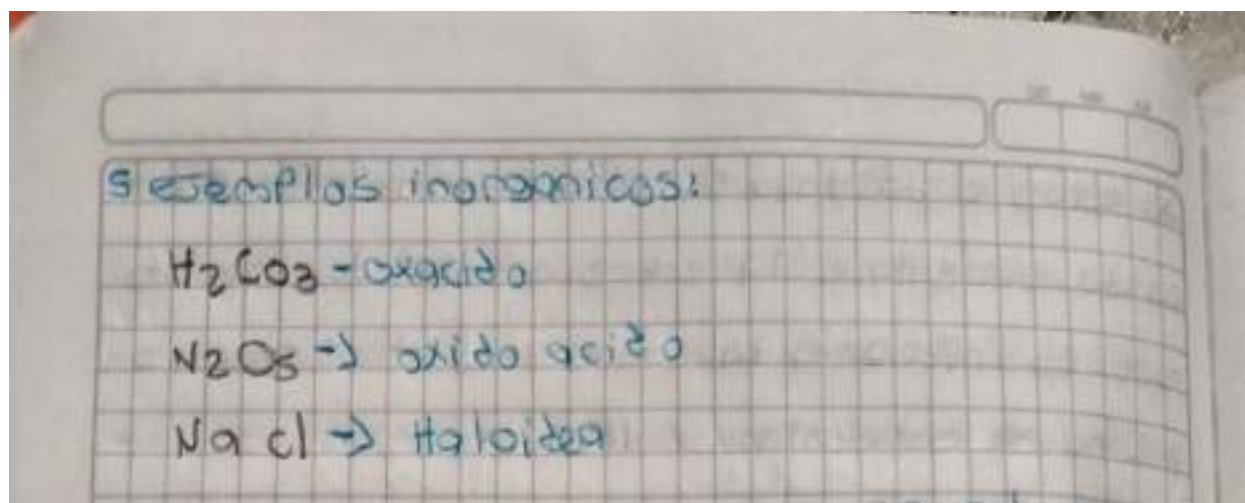 5 ejemplos inorganicos:
H2CO3 - oxacido
N2O5 -> oxido acido
Na cl -> Haloidea